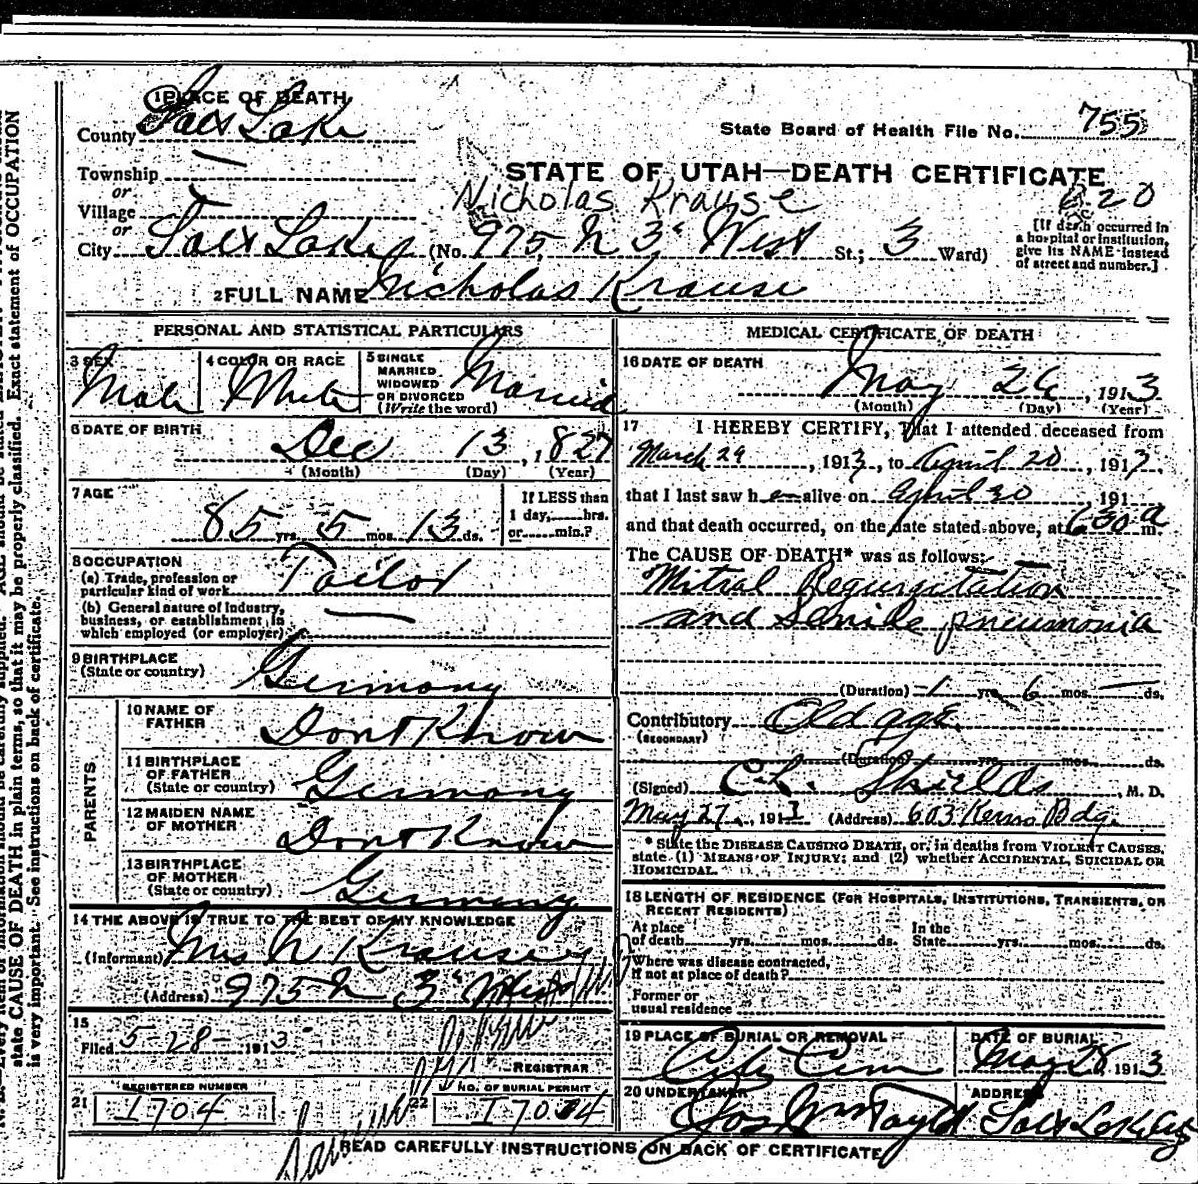 1 PLACE OF DEATH
County Salt Lake
State Board of Health File No. 755
Township
or
STATE OF UTAH—DEATH CERTIFICATE
Village
Nicholas Krause
820
or
City Salt Lake (No. 975 N 3" West St.; 3 Ward)
[If death occurred in
a hospital or institution,
give its NAME instead
of street and number.]
2 FULL NAME Nicholas Krause
PERSONAL AND STATISTICAL PARTICULARS
3 SEX
Male
4 COLOR OR RACE
White
5 SINGLE
MARRIED
WIDOWED
OR DIVORCED
(Write the word)
Married
6 DATE OF BIRTH
Dec 13, 1827
(Month) (Day) (Year)
7 AGE
85 yrs. 5 mos. 13 ds.
If LESS than
1 day, hrs.
or min.?
8 OCCUPATION
(a) Trade, profession or
particular kind of work Tailor
(b) General nature of industry,
business, or establishment in
which employed (or employer)
9 BIRTHPLACE
(State or country) Germany
PARENTS
10 NAME OF
FATHER Dont Know
11 BIRTHPLACE
OF FATHER
(State or country) Germany
12 MAIDEN NAME
OF MOTHER Dont Know
13 BIRTHPLACE
OF MOTHER
(State or country) Germany
14 THE ABOVE IS TRUE TO THE BEST OF MY KNOWLEDGE
(Informant) Mrs N Krause
(Address) 975 N 3" West
15
Filed 5-28-1913
REGISTRAR
REGISTERED NUMBER
21 1704
NO. OF BURIAL PERMIT
22 17004
MEDICAL CERTIFICATE OF DEATH
16 DATE OF DEATH
May 26, 1913
(Month) (Day) (Year)
17 I HEREBY CERTIFY, That I attended deceased from
March 29, 1913, to April 20, 1913,
that I last saw h alive on April 20, 191
and that death occurred, on the date stated above, at 630 a m.
The CAUSE OF DEATH* was as follows:
Mitral Regurgitation
and Senile pneumonia
(Duration) 1 yrs. 6 mos. — ds.
Contributory Old age
(SECONDARY)
(Duration) yrs. mos. ds.
(Signed) C.L. Shields, M. D.
May 27, 1913 (Address) 603 Kerns Bdg.
* State the DISEASE CAUSING DEATH, or, in deaths from VIOLENT CAUSES,
state (1) MEANS OF INJURY; and (2) whether ACCIDENTAL, SUICIDAL OR
HOMICIDAL.
18 LENGTH OF RESIDENCE (FOR HOSPITALS, INSTITUTIONS, TRANSIENTS, OR
RECENT RESIDENTS)
At place
of death yrs. mos. ds.
In the
State yrs. mos. ds.
Where was disease contracted,
if not at place of death?
Former or
usual residence
19 PLACE OF BURIAL OR REMOVAL
City Cem
DATE OF BURIAL
May 28 1913
20 UNDERTAKER
Jos Wm Taylor
ADDRESS
Salt Lake City
READ CAREFULLY INSTRUCTIONS ON BACK OF CERTIFICATE
state CAUSE OF DEATH in plain terms, so that it may be properly classified. Exact statement of OCCUPATION
is very important. See instructions on back of certificate.